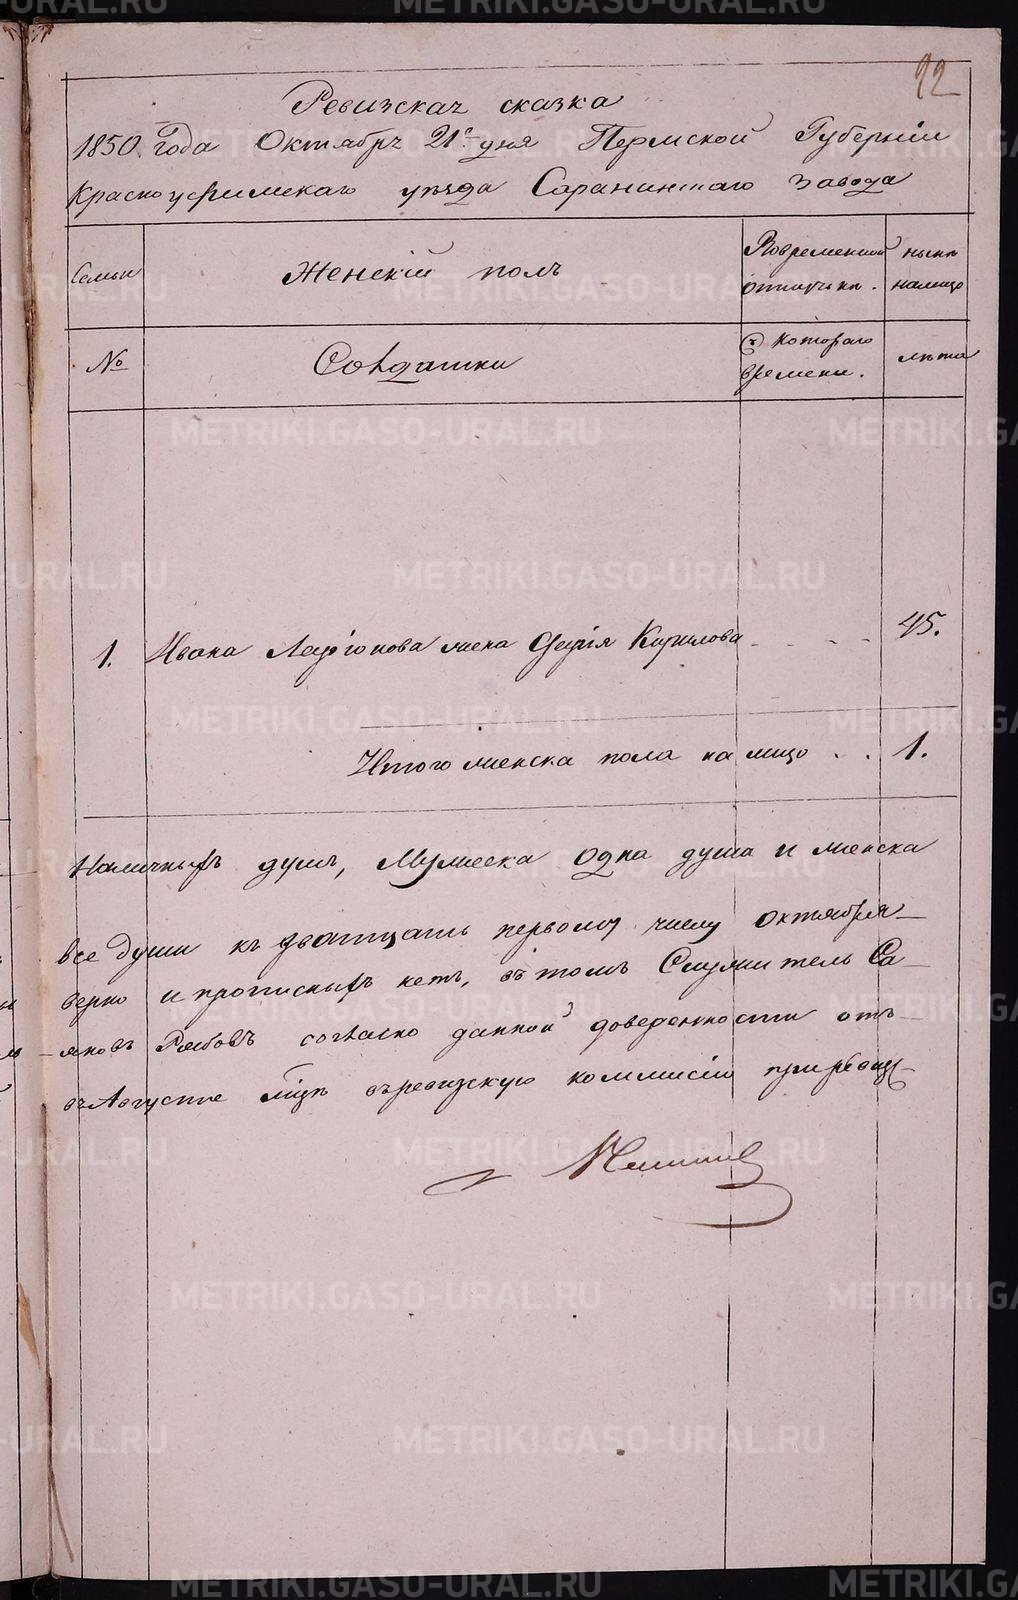 92
Ревизская сказка
1850 года Октября 21го дня Пермской Губернiи
Красноуфимскаго уѣзда Саранинскаго Завода
Семьи
Женскiй полъ
Вовременной отлучкѣ.
нынѣ налицо
№
Солдатки
Съ котораго времени.
лѣта
1. Ивана Ларiонова жена Кирилова 45.
Итого женска пола на лицо . . 1.
Наличныхъ душъ, Мужеска одна душа и женска
все души къ дватцать первому числу октября
верно и прописныхъ нетъ, въ томъ Служитель Са-
яновъ согласно данной доверенности отъ
въ Августе мцѣ въ ревизскую коммисiю
METRIKI.GASO-URAL.RU